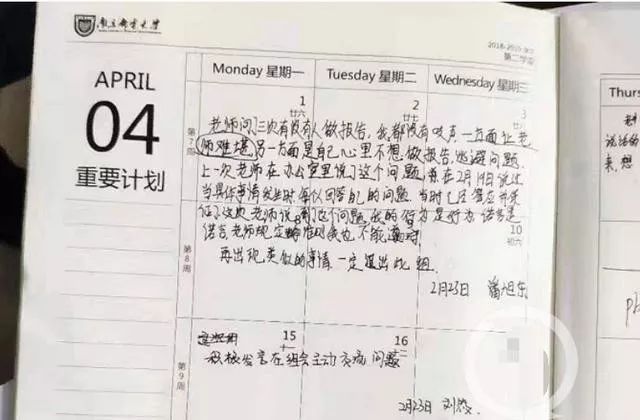 南京邮电大学
2018-2019 学年
第二学期
APRIL
04
重要计划
Monday 星期一
Tuesday 星期二
Wednesday 星期三
Thurs
1
廿六
2
廿七
3
第7周
老师问三次有没有人做报告,我都没有吱声,一方面让老
师难堪,另一方面是自己心里不想做报告,逃避问题.
上一次老师在办公室里说了这个问题,并在2月19日说过
当具体事情发生时每人回答自己的问题.当时已经答应并
这次老师说到这个问题,我的行为是
诺言,老师规定时我也不能遵守
10
初六
第8周
再出现类似的事情一定退出此组.
2月23日 潘旭东
15
十一
16
十二
第9周
积极发言在组会主动交流问题
2月23日 刘